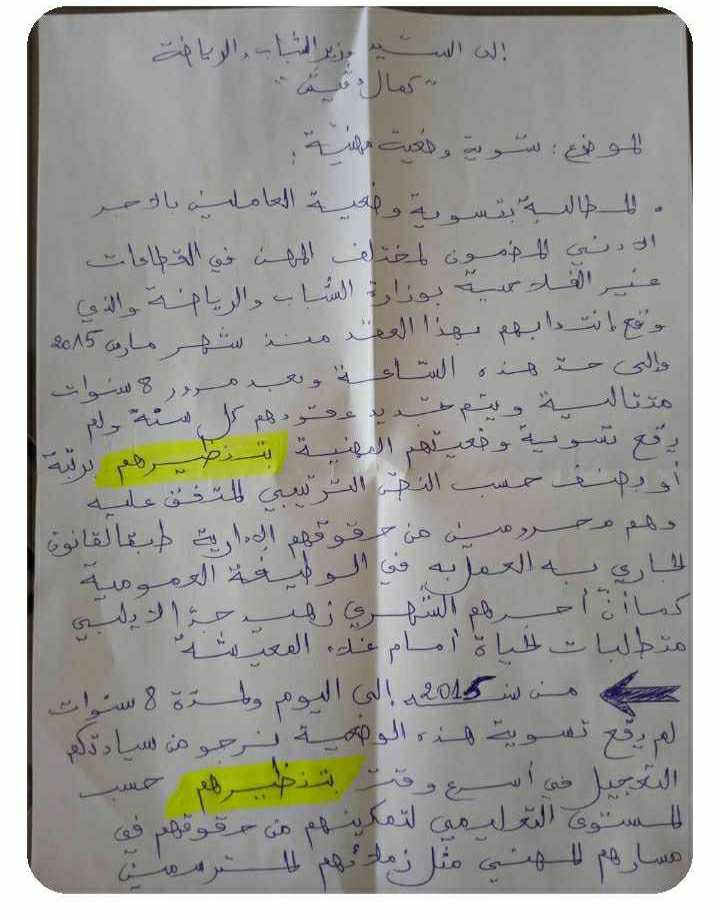 إلى السيد وزير الشباب والرياضة
"كمال دقيش"
الموضوع: تسوية وضعية مهنية:
. المطالبة بتسوية وضعية العاملين بالأجر
الأدنى المضمون لمختلف المهن في القطاعات
غير الفلاحية بوزارة الشباب والرياضة والذي
وقع انتدابهم بهذا العقد منذ شهر مارس 2015
وإلى حدّ هذه السّاعة وبعد مرور 8 سنوات
متتالية ويتم تجديد عقودهم كل سنة ولم
يقع تسوية وضعيتهم المهنية بتنظيرهم برتبة
أو صنف حسب النصّ الترتيبي المتفق عليه
وهم محرومين من حقوقهم الإدارية طبقا لقانون
الجاري به العمل به في الوظيفة العمومية
كما أنّ أجرهم الشّهري زهيد جدّا لا يلبي
متطلبات الحياة أمام غلاء المعيشة
من سنة 2015 إلى اليوم ولمدّة 8 سنوات
لم يقع تسوية هذه الوضعية نرجو من سيادتكم
التعجيل في أسرع وقت بتنظيرهم حسب
المستوى التعليمي لتمكينهم من حقوقهم في
مسارهم المهني مثل زملائهم المترسمين